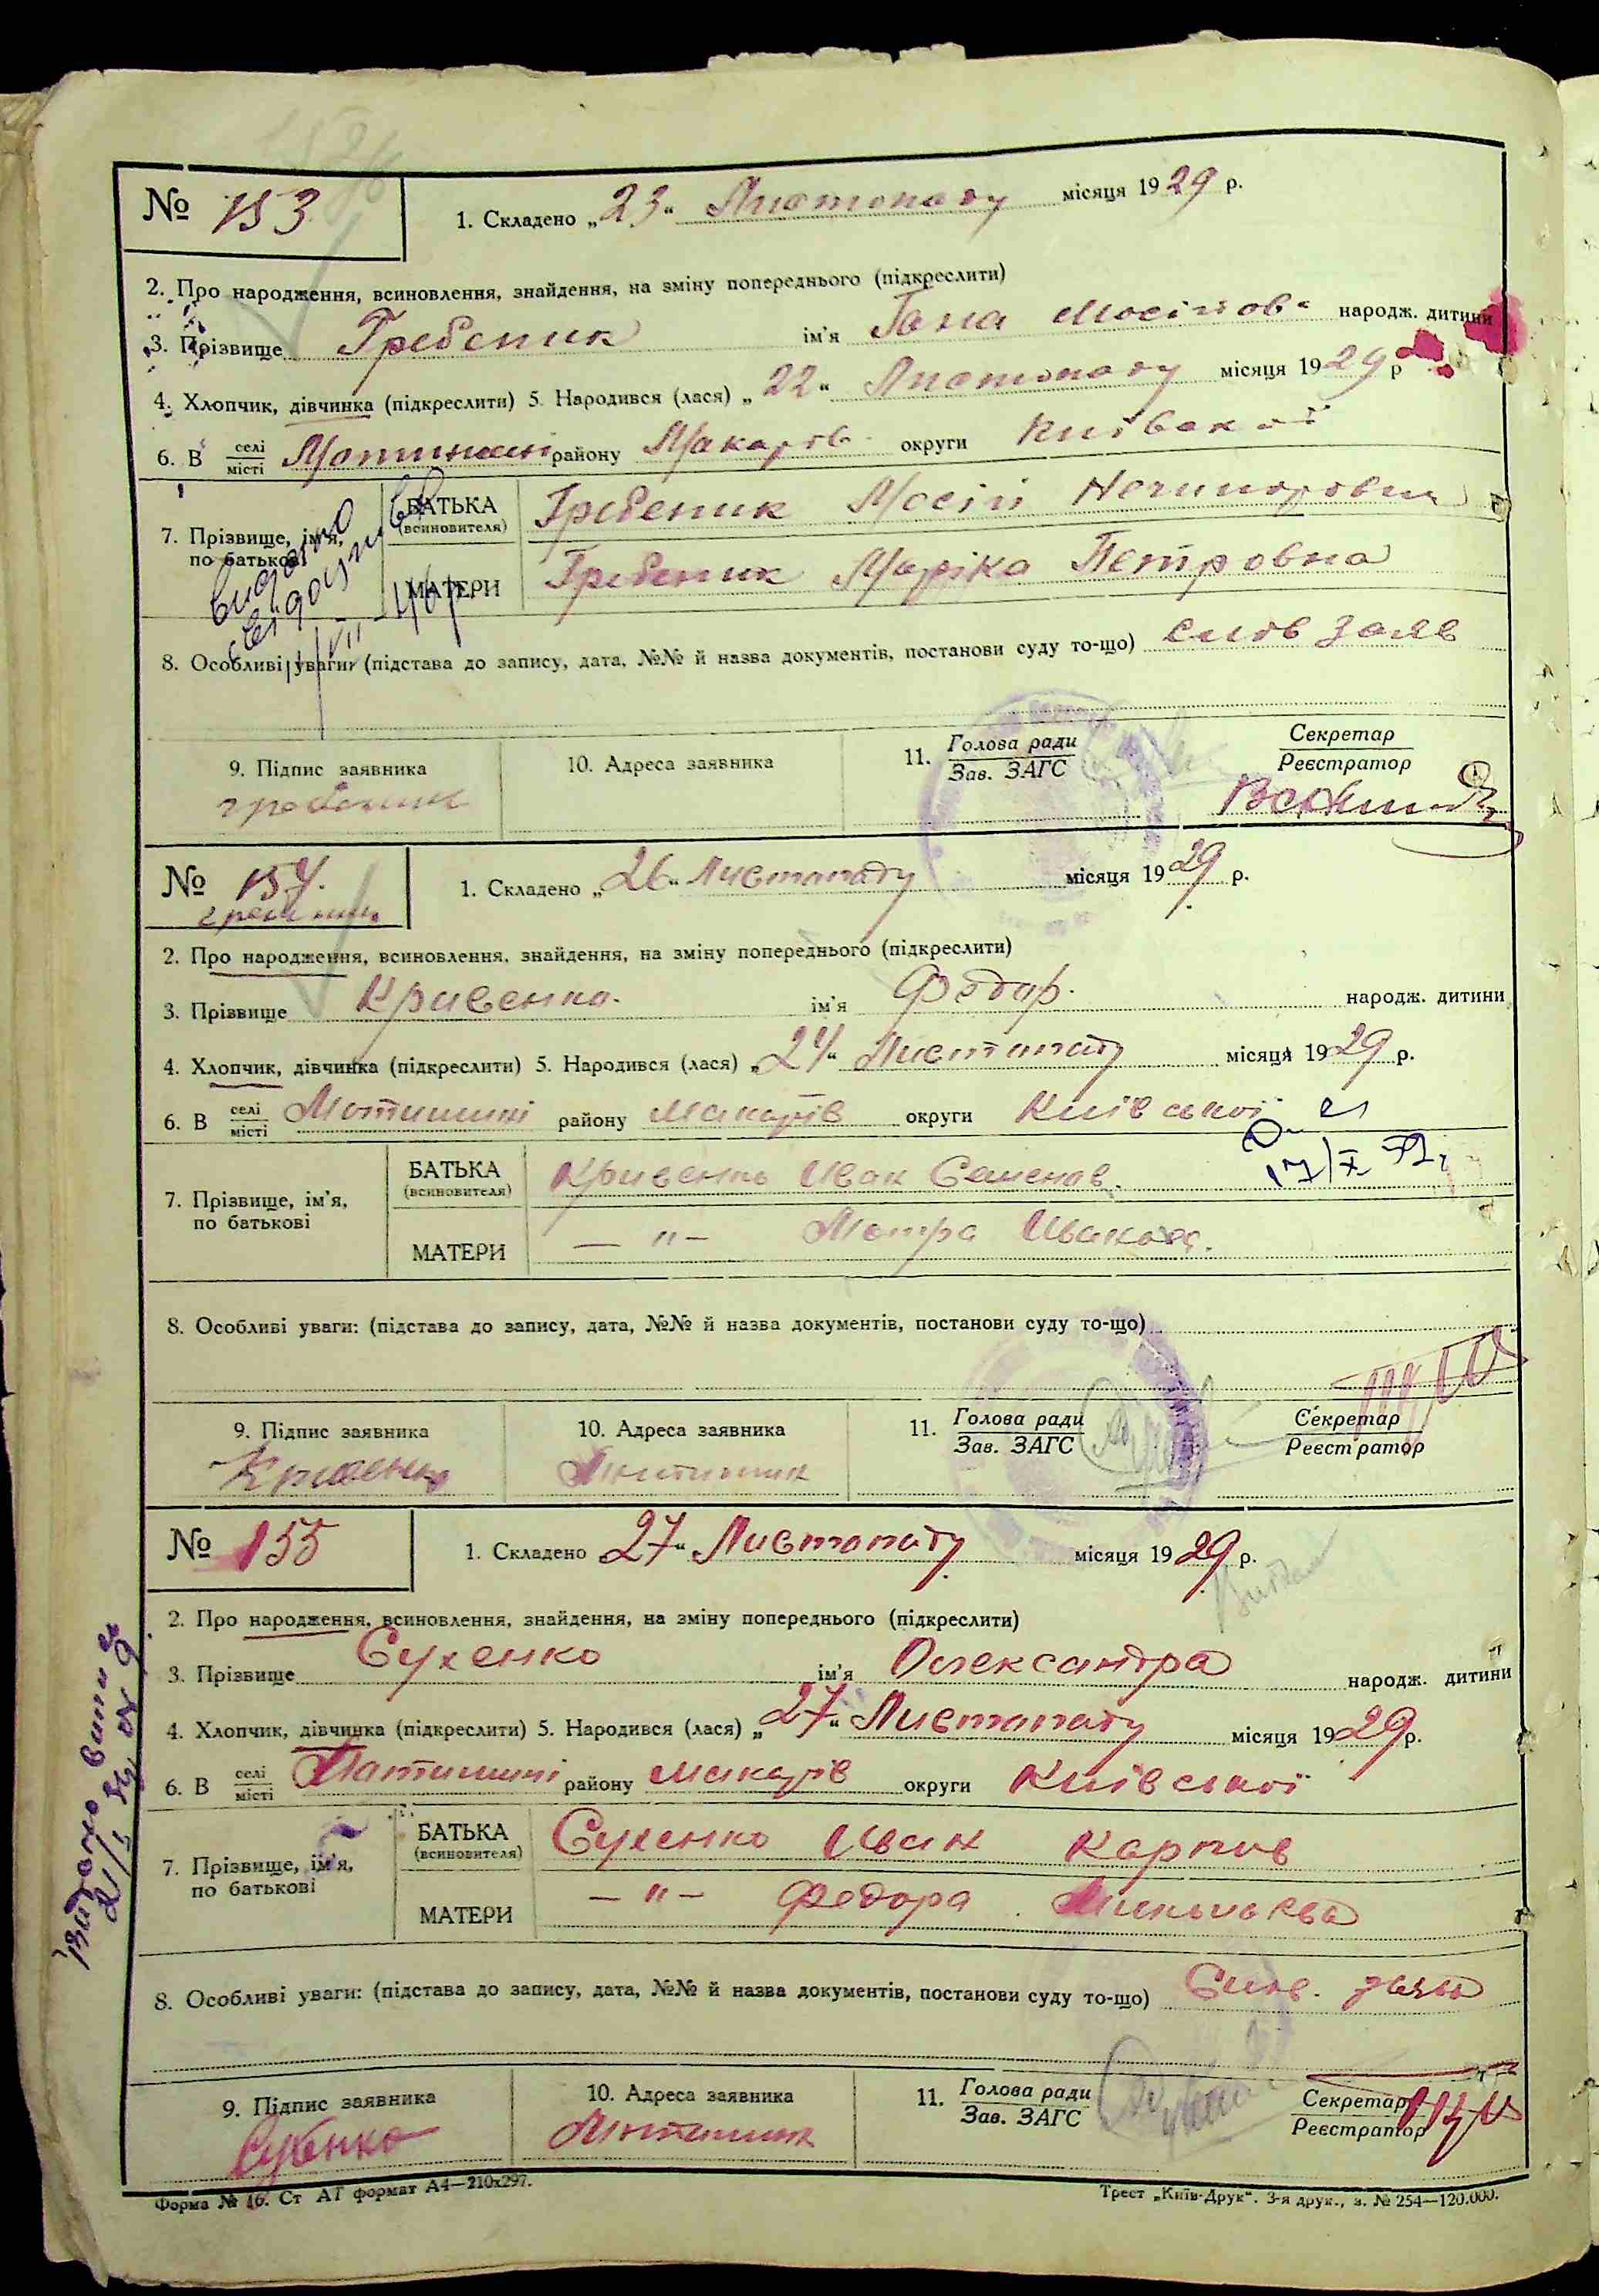 № 153
1. Складено „23“ Листопаду місяця 1929 р.
2. Про народження, всиновлення, знайдення, на зміну попереднього (підкреслити)
3. Прізвище Гребеник ім'я Ганa Мосійов народж. дитини
4. Хлопчик, дівчинка (підкреслити) 5. Народився (лася) „22“ Листопаду місяця 1929 р
6. В селі місті Мотижині району Макарів округи Київської
7. Прізвище, ім'я, по батькові
БАТЬКА (всиновителя) Гребеник Мосій Нечипорович
МАТЕРИ Гребеник Марійка Петровна
видано
8. Особливі уваги: (підстава до запису, дата, №№ й назва документів, постанови суду то-що) слов заяв
9. Підпис заявника
гребеник
10. Адреса заявника
11. Голова ради
Зав. ЗАГС
Секретар
Реєстратор
№ 154.
1. Складено „26“ Листопаду місяця 1929 р.
2. Про народження, всиновлення, знайдення, на зміну попереднього (підкреслити)
3. Прізвище Кривенко ім'я Федир народж. дитини
4. Хлопчик, дівчинка (підкреслити) 5. Народився (лася) „24“ Листопаду місяця 1929 р.
6. В селі місті Мотижині району Макарів округи Київської
7. Прізвище, ім'я, по батькові
БАТЬКА (всиновителя) Кривенко Иван Семенов.
17/X 52
МАТЕРИ — "— Мотра Иванова.
8. Особливі уваги: (підстава до запису, дата, №№ й назва документів, постанови суду то-що)
9. Підпис заявника
Кривенко
10. Адреса заявника
Мотижин
11. Голова ради
Зав. ЗАГС
Секретар
Реєстратор
№ 155
1. Складено „27“ Листопаду місяця 1929 р.
2. Про народження, всиновлення, знайдення, на зміну попереднього (підкреслити)
3. Прізвище Сухенко ім'я Олександра народж. дитини
4. Хлопчик, дівчинка (підкреслити) 5. Народився (лася) „27“ Листопаду місяця 1929 р.
6. В селі місті Мотижині району Макарів округи Київської
7. Прізвище, ім'я, по батькові
БАТЬКА (всиновителя) Сухенко Иван Карпов
МАТЕРИ — "— Федора
Видано
8. Особливі уваги: (підстава до запису, дата, №№ й назва документів, постанови суду то-що) Слов. заяв
9. Підпис заявника
Сухенко
10. Адреса заявника
Мотижин
11. Голова ради
Зав. ЗАГС
Секретар
Реєстратор
Форма № 16. Ст АГ формат А4—210x297.
Трест „Київ-Друк“. 3-я друк., з. № 254—120.000.